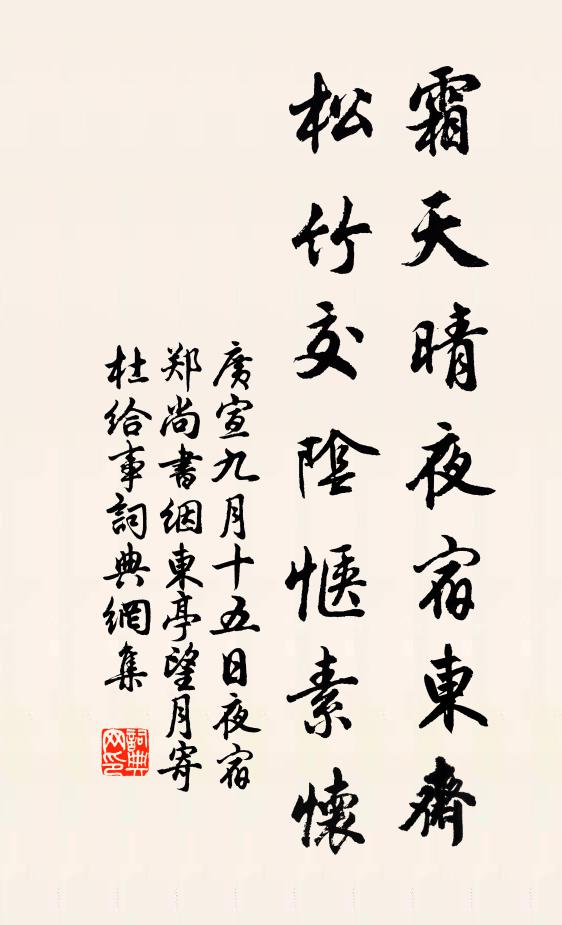 霜天晴夜宿東齋
松竹交陰愜素懷
廣宣九月十五日夜宿
郑尚書絪東亭望月寄
杜給事詞典網集
詞典网印